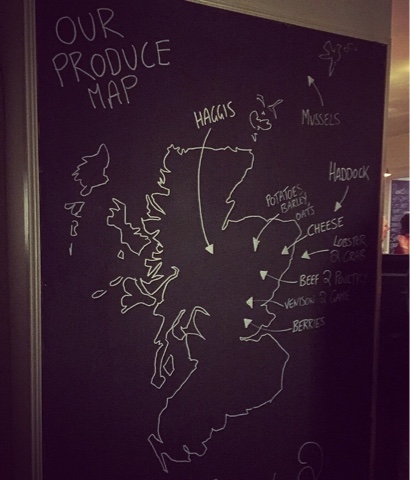 OUR
PRODUCE
MAP
HAGGIS
MUSSELS
HADDOCK
POTATOES,
BARLEY,
OATS
CHEESE
LOBSTER
& CRAB
BEEF & POULTRY
VENISON & GAME
BERRIES